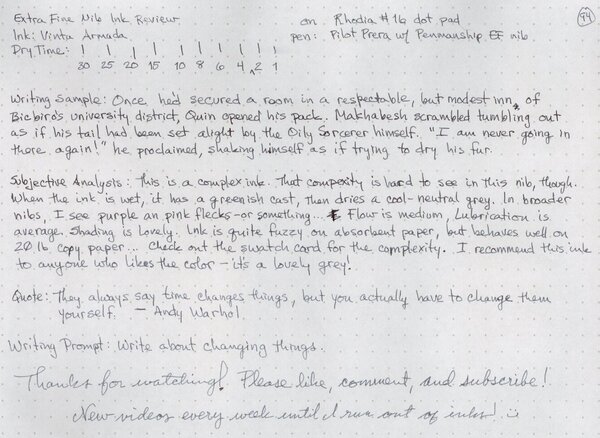 Extra Fine Nib Ink Review on Rhodia #16 dot pad 94
Ink: Vinta Armada pen: Pilot Prera w/ Penmanship EF nib
Dry Time: 30 25 20 15 10 8 6 4 2 1
Writing Sample: Once he'd secured a room in a respectable, but modest inn, of
Bicbiro's university district, Quin opened his pack. Makhabesh scrambled tumbling out
as if his tail had been set alight by the Oily Sorcerer himself. "I am never going in
there again!" he proclaimed, shaking himself as if trying to dry his fur.
Subjective Analysis: This is a complex ink. That compexity is hard to see in this nib, though.
When the ink is wet, it has a greenish cast, then dries a cool-neutral grey. In broader
nibs, I see purple an pink flecks-or something... Flow is medium, Lubrication is
average. Shading is lovely. Ink is quite fuzzy on absorbent paper, but behaves well on
20 lb copy paper... Check out the swatch card for the complexity. I recommend this ink
to anyone who likes the color - it's a lovely grey!
Quote: They always say time changes things, but you actually have to change them
yourself. - Andy Warhol
Writing Prompt: Write about changing things.
Thanks for watching! Please like, comment, and subscribe!
New videos every week until I run out of inks! :)